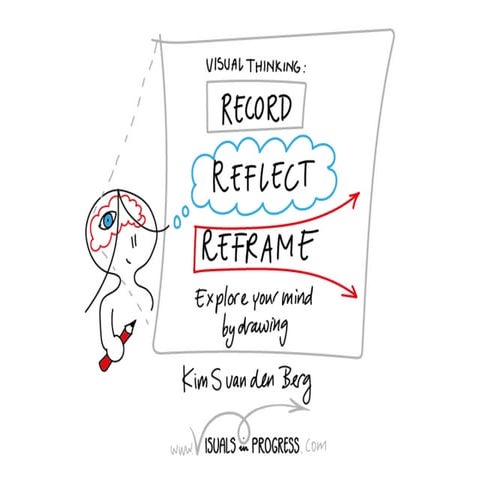 VISUAL THINKING:
RECORD
REFLECT
REFRAME
Explore your mind
by drawing
Kim S van den Berg
www.VISUALS in PROGRESS.com